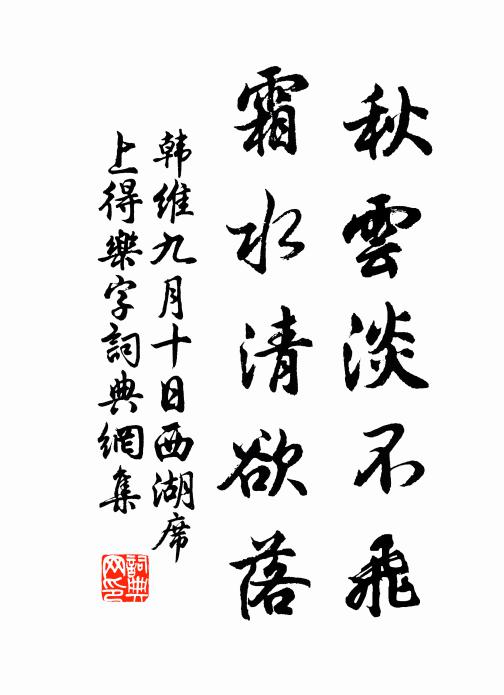 秋雲淡不飛
霜水清欲落
韩維九月十日西湖席
上得樂字詞典網集
詞典
网印